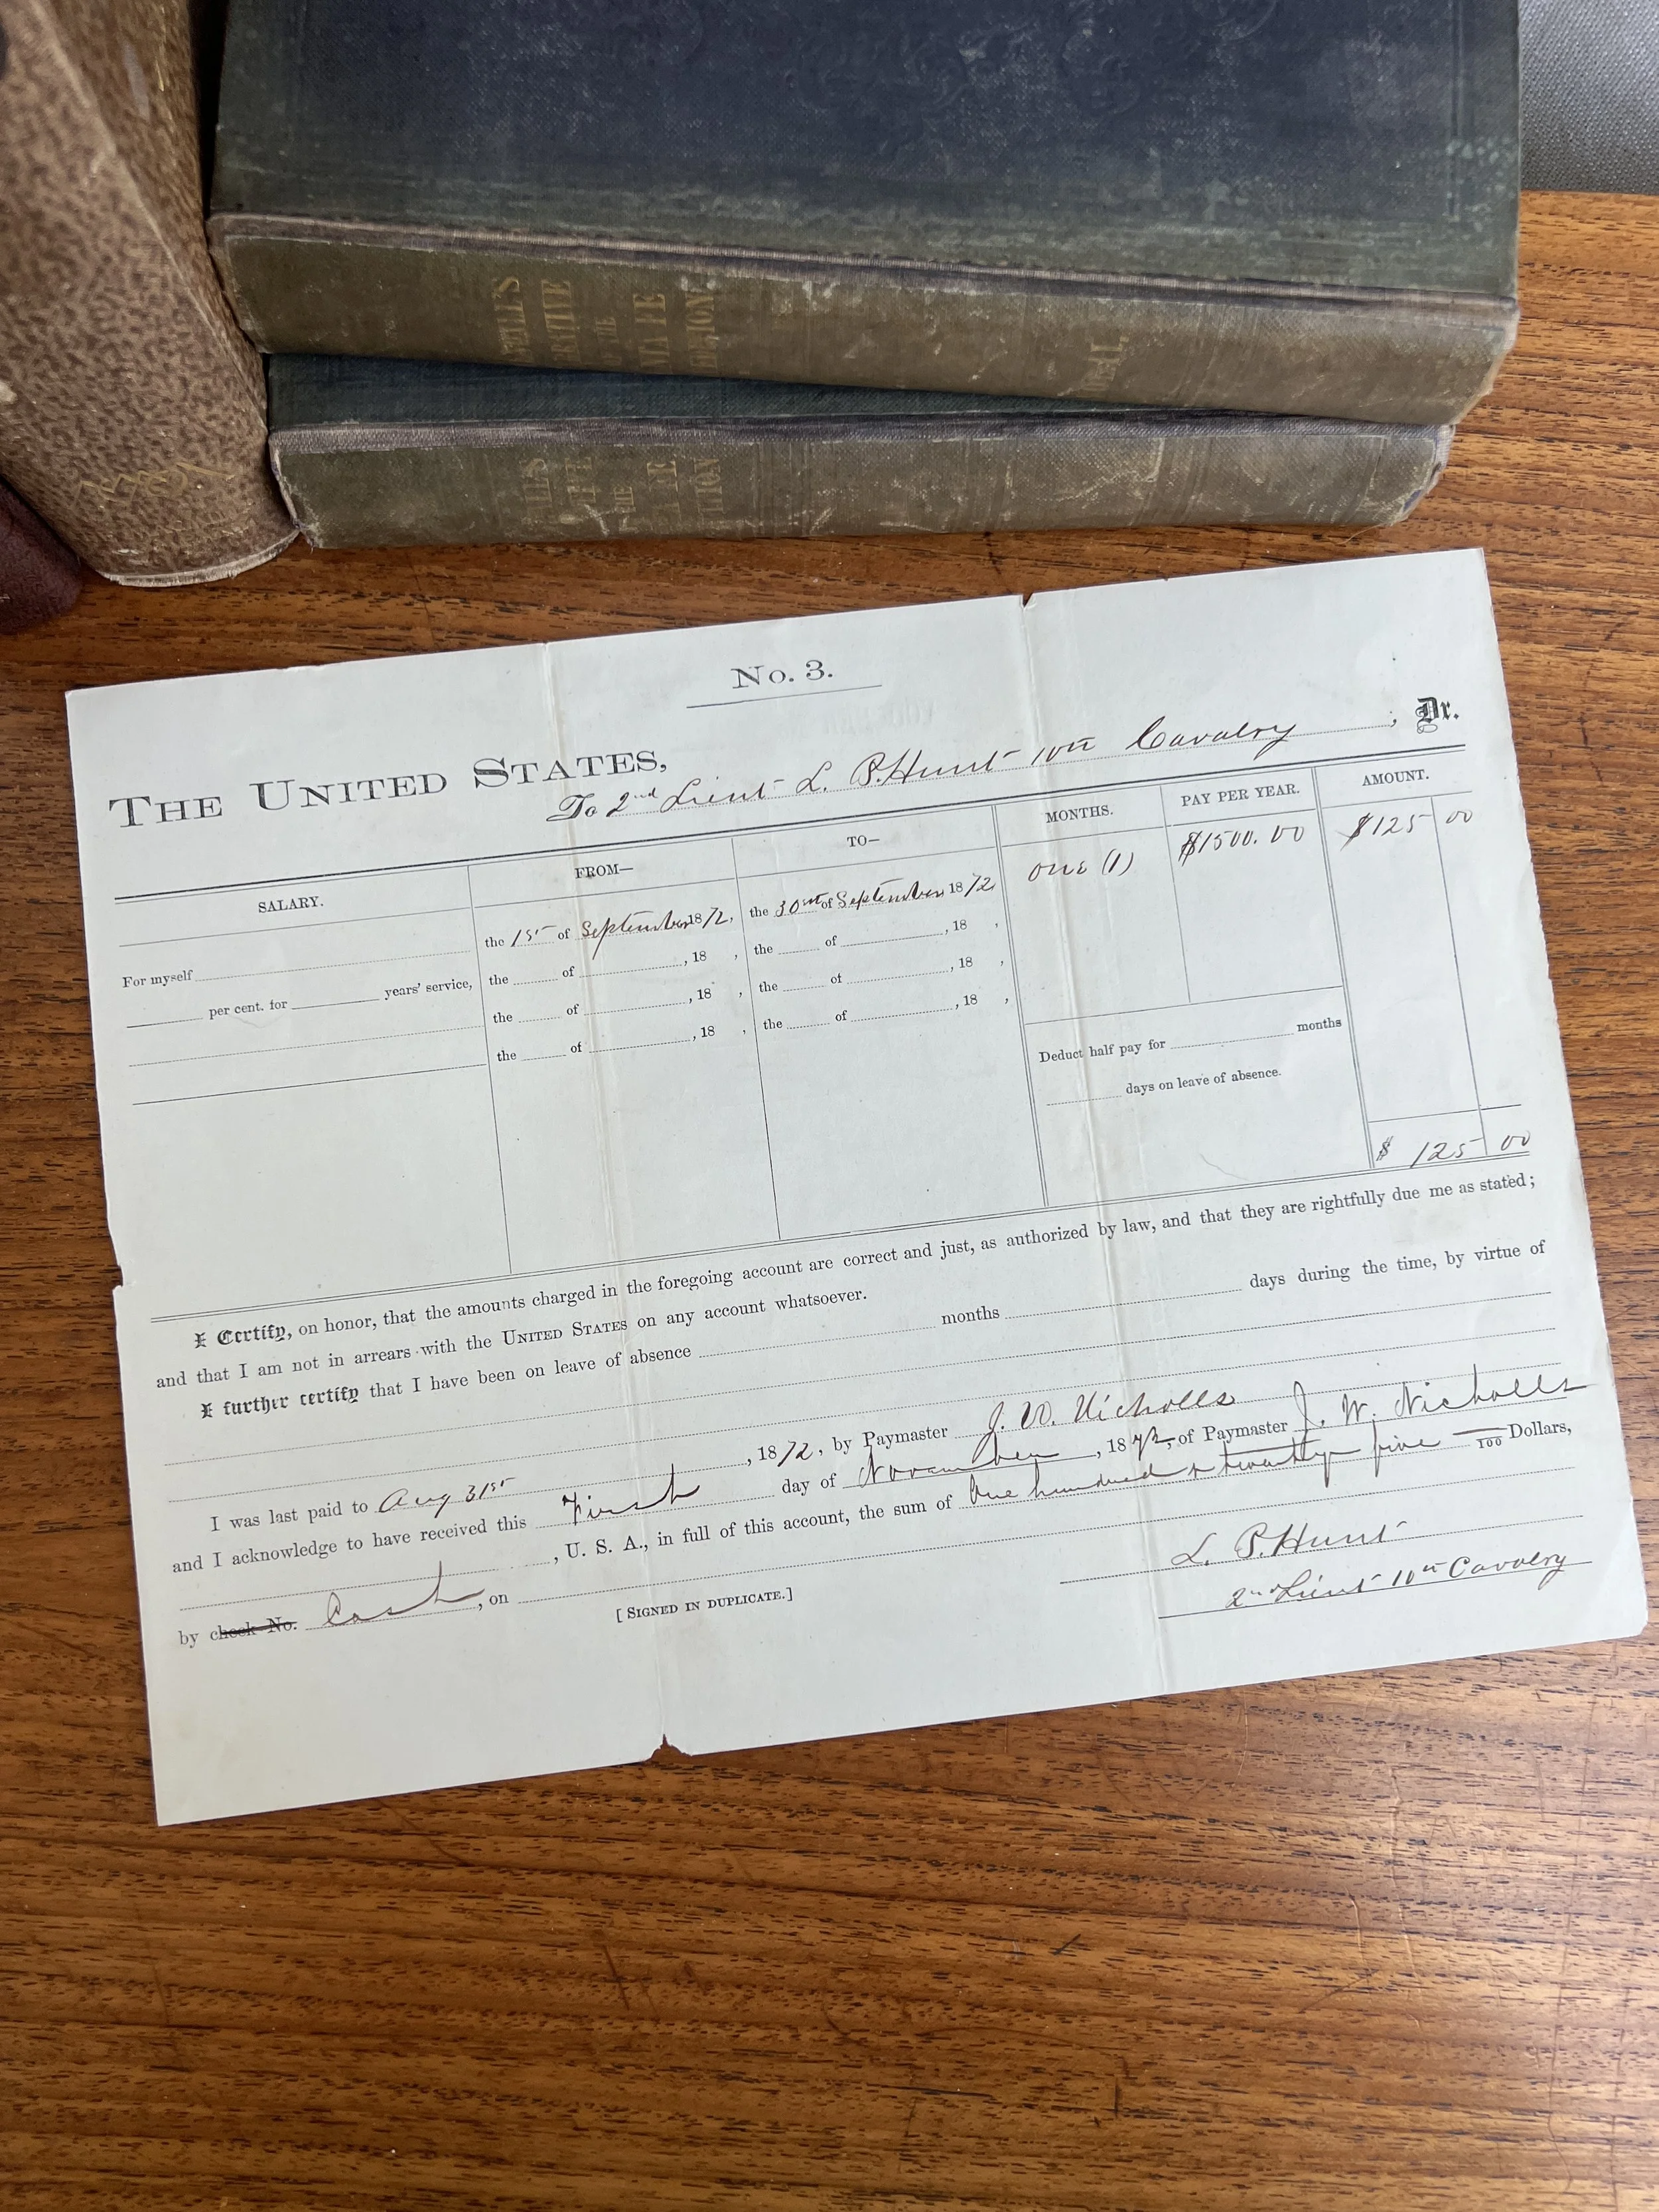 VOL. I.
No. 3.
THE UNITED STATES,
To 2nd Lieut L. P. Hunt 10th Cavalry, Dr.
SALARY. FROM— TO— MONTHS. PAY PER YEAR. AMOUNT.
For myself the 1st of September 1872, the 30th of September 1872 one (1) $1500.00 $125 00
per cent. for years' service, the of , 18 , the of , 18 ,
the of , 18 , the of , 18 ,
the of , 18 , the of , 18 ,
Deduct half pay for months
days on leave of absence.
$ 125 00
I Certify, on honor, that the amounts charged in the foregoing account are correct and just, as authorized by law, and that they are rightfully due me as stated;
and that I am not in arrears with the UNITED STATES on any account whatsoever.
I further certify that I have been on leave of absence months days during the time, by virtue of
I was last paid to Aug 31st, 1872, by Paymaster J. W. Nicholls
and I acknowledge to have received this First day of November, 1872, of Paymaster J. W. Nicholls
, U. S. A., in full of this account, the sum of One hundred & twenty five /100 Dollars,
by check No. Cash, on
[SIGNED IN DUPLICATE.]
L. P. Hunt
2nd Lieut 10th Cavalry